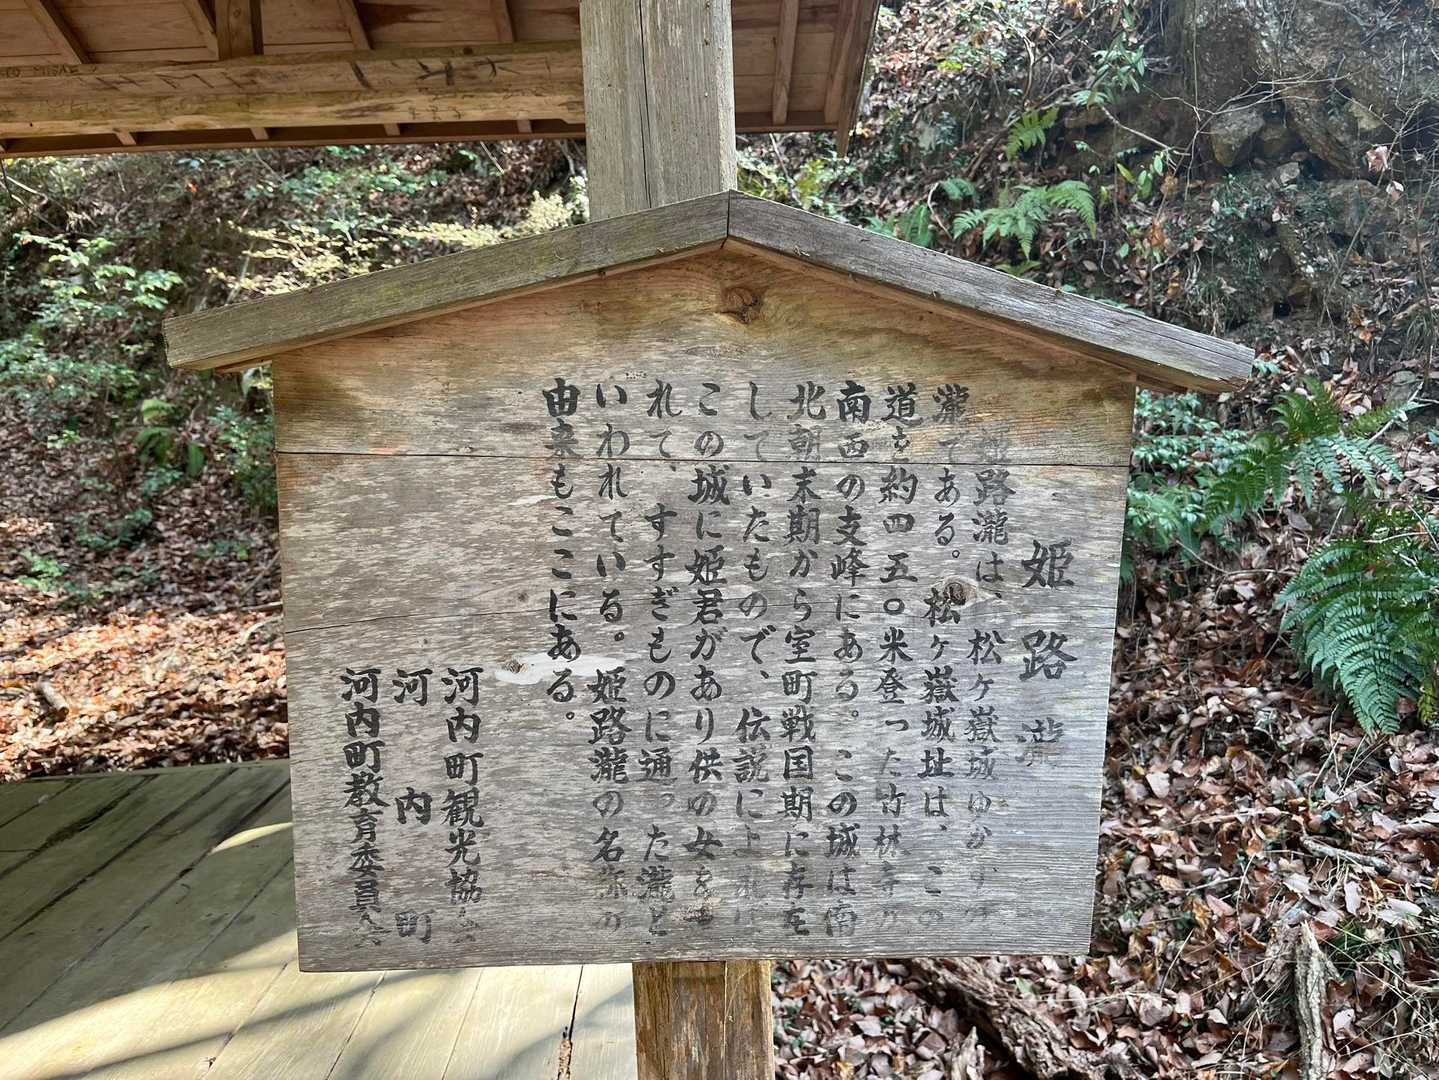 姫路瀧
姫路瀧は、松ケ嶽城ゆかりの
瀧である。松ヶ嶽城址は、この
道を約四五〇米登った竹林寺の
南西の支峰にある。この城は南
北朝末期から室町戦国期に存在
していたもので、伝説によれば
この城に姫君があり供の女をつ
れて、すすぎものに通った瀧と
いわれている。姫路瀧の名称の
由来もここにある。
河内町観光協会
河内町
河内町教育委員会